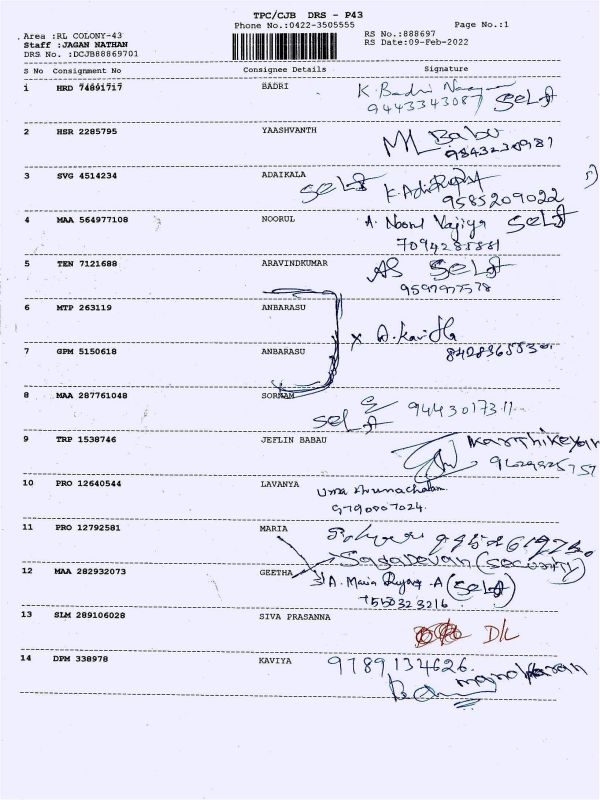 TPC/CJB DRS - P43
Phone No.:0422-3505555 Page No.:1
Area :RL COLONY-43 RS No.:888697
Staff :JAGAN NATHAN RS Date:09-Feb-2022
DRS No. :DCJB88869701
S No Consignment No Consignee Details Signature
1 HRD 74891717 BADRI K. Badri
9443343087 SELF
2 HSR 2285795 YAASHVANTH Babu
3 SVG 4514234 ADAIKALA SELF
9585209022
4 MAA 564977108 NOORUL A. Noorul SELF
7094288881
5 TEN 7121688 ARAVINDKUMAR AS SELF
6 MTP 263119 ANBARASU
7 GPM 5150618 ANBARASU x
8 MAA 287761048 SORNAM
SELF
9 TRP 1538746 JEFLIN BABAU Karthikeyan
10 PRO 12640544 LAVANYA Uma Arunachalam
9790807024
11 PRO 12792581 MARIA
(Security)
12 MAA 282932073 GEETHA A. Maria (SELF)
13 SLM 289106028 SIVA PRASANNA D/L
14 DPM 338978 KAVIYA 9789134626